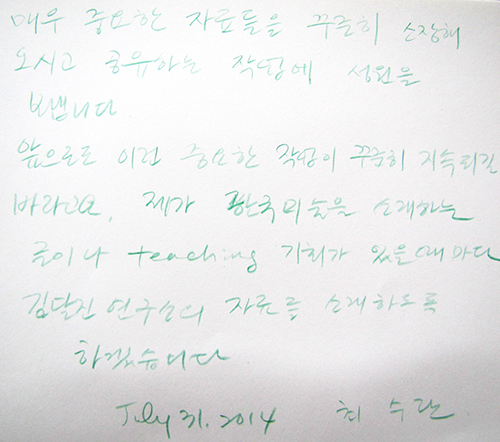 매우 중요한 자료들을 꾸준히 소장해
오시고 공유하는 작업에 성원을
보냅니다
앞으로도 이런 중요한 작업이 꾸준히 지속되길
바라고요, 제가 한국미술을 소개하는
글이나 teaching 기회가 있을때마다
김달진 연구소의 자료를 소개하도록
하겠습니다
July 31. 2014 최수란